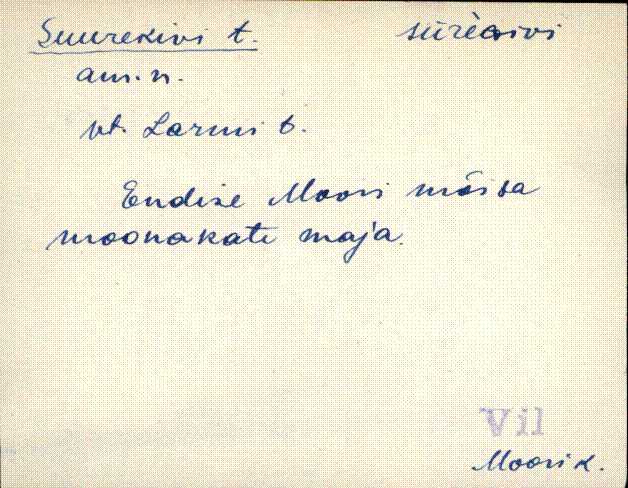 Suurekivi t. sūrè
am. n.
vt. Larmi t.
Endise Moori mõisa
moonakate maja.
Vil
Moori k.